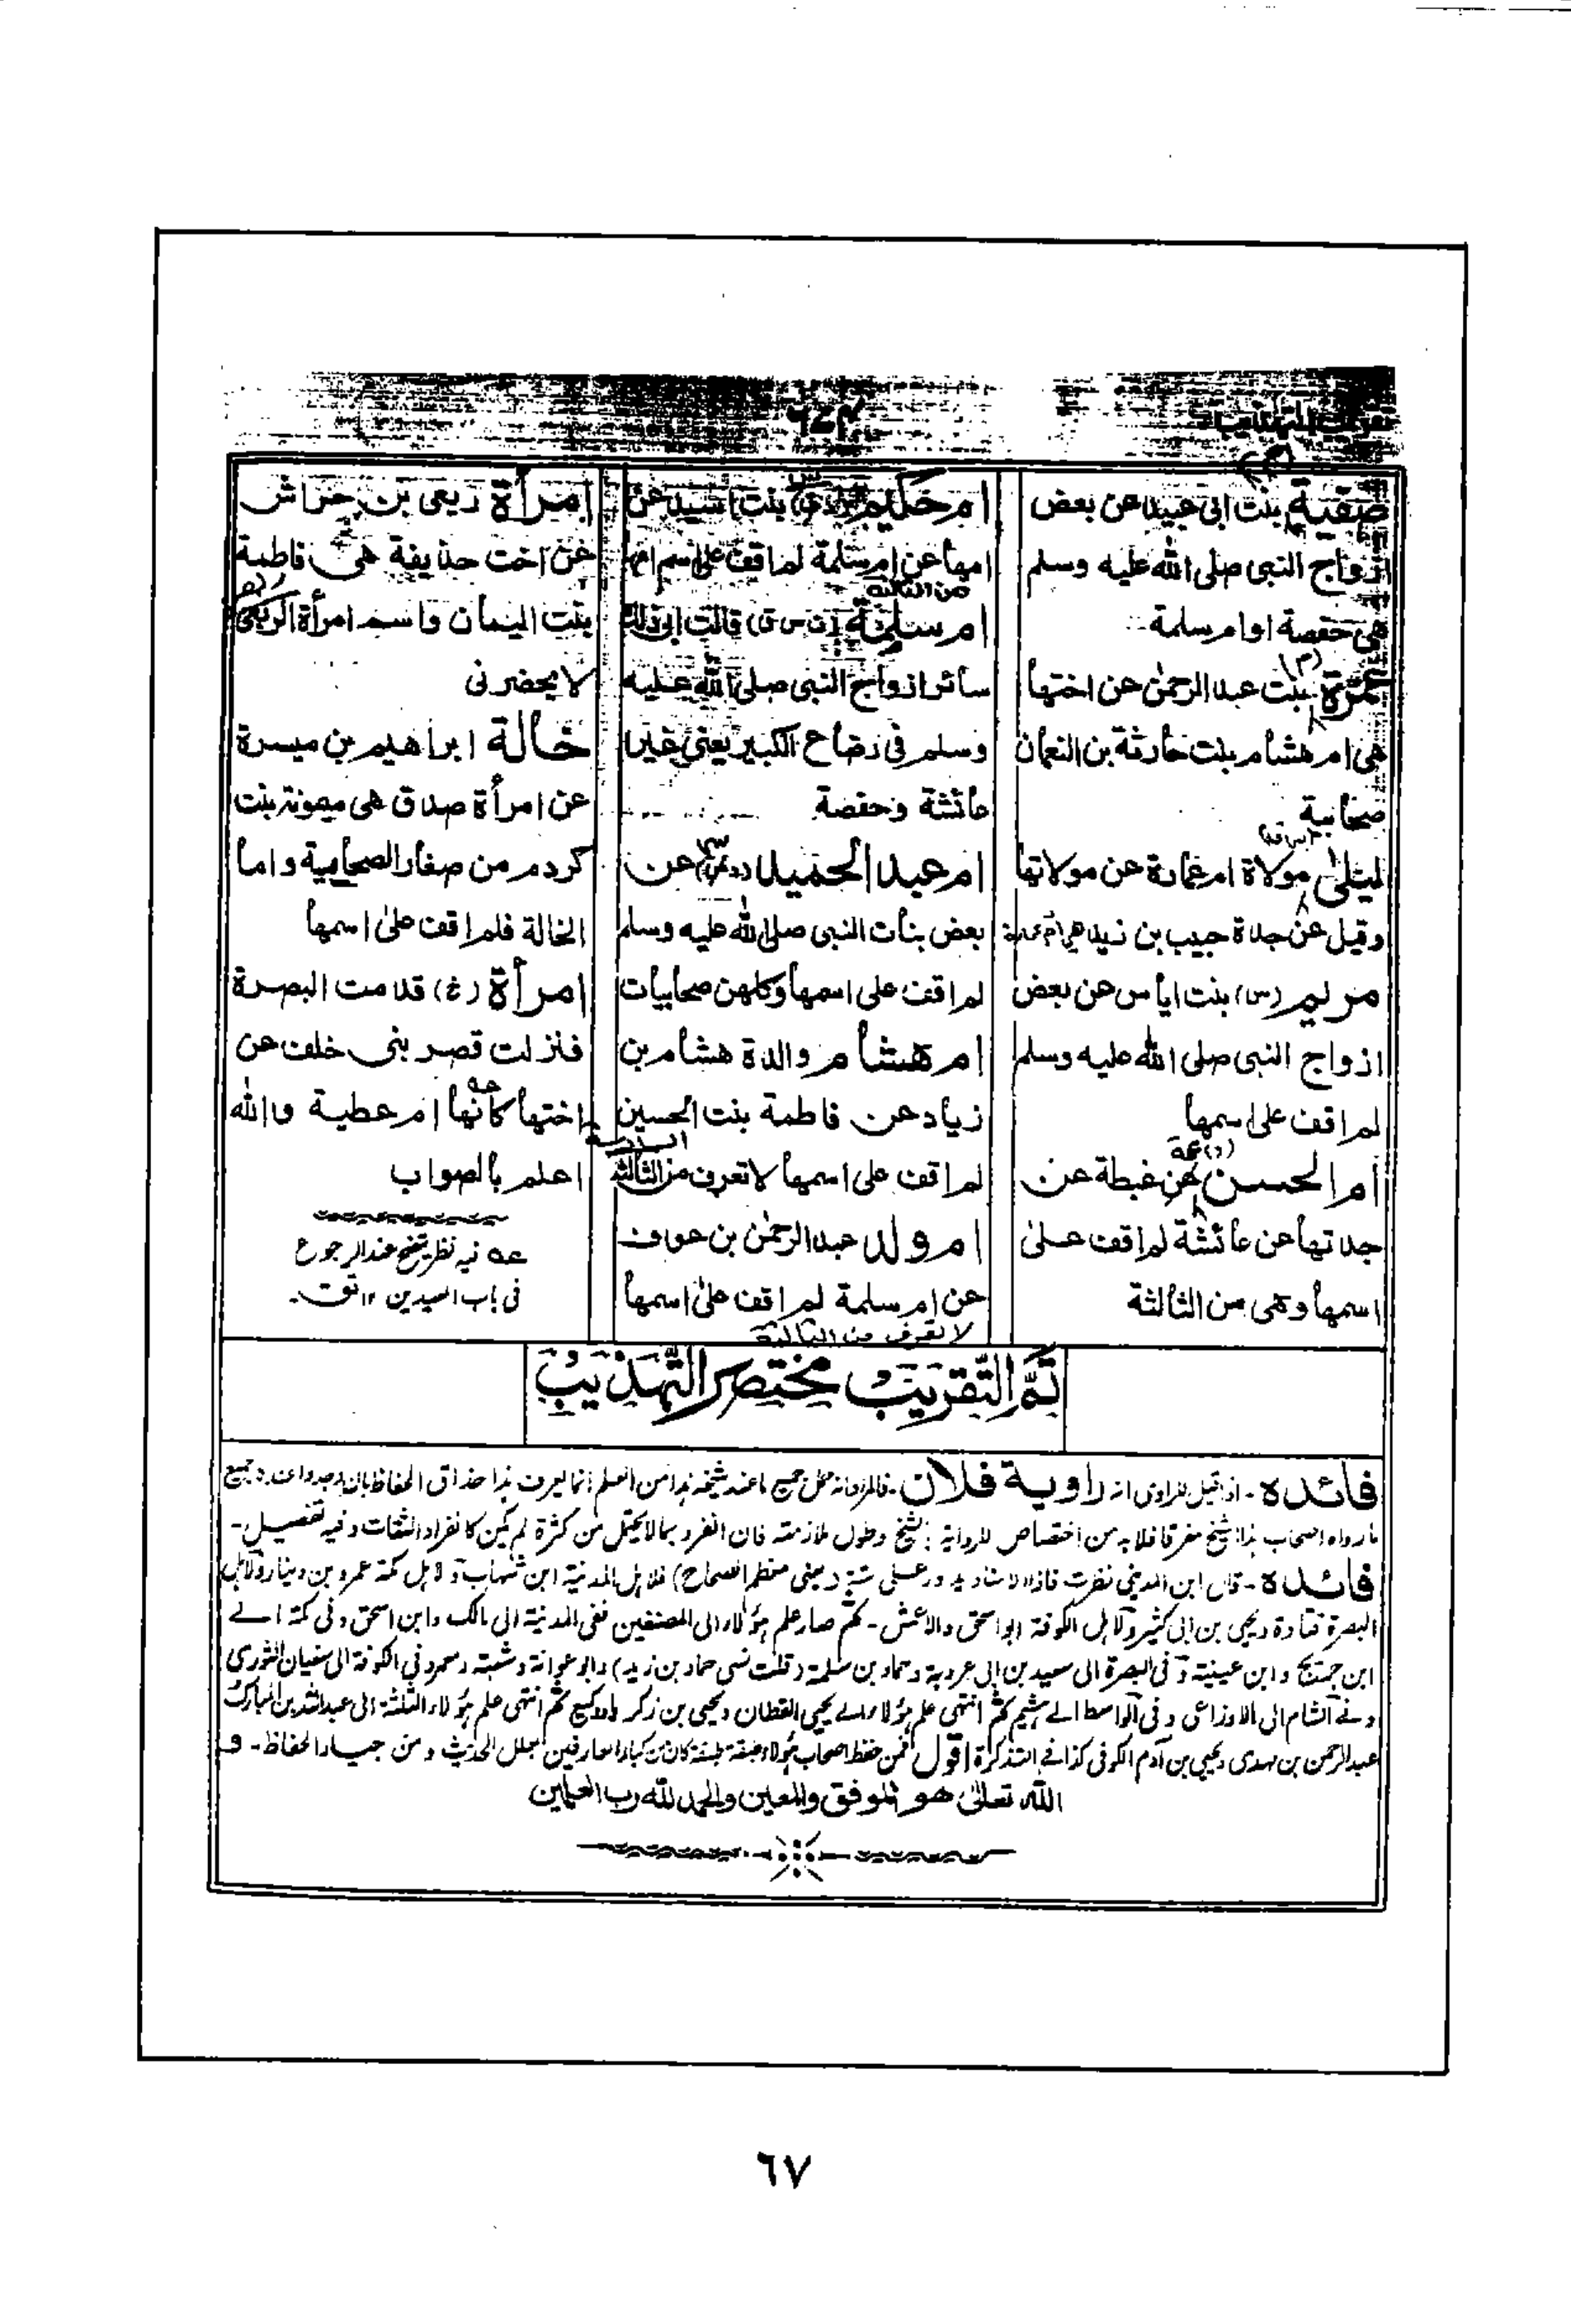 تقريب التهذيب
صفية بنت ابى عبيد عن بعض
ازواج النبى صلى الله عليه وسلم
هى حفصة او ام سلمة
(م)
عمرة بنت عبد الرحمٰن عن اختها
هى ام هشام بنت حارثة بن النعمان
صحابية
ليلىٰ مولاة ام عمارة عن مولاتها
وقيل عن جدة حبيب بن زيد هى ام عمارة
مريم (س) بنت اياس عن بعض
ازواج النبى صلى الله عليه وسلم
لم اقف على اسمها
(د) عمة
ام الحسن عن غبطة عن
جدتها عن عائشة لم اقف علىٰ
اسمها وهى من الثالثة
ام حكيم بنت اسيد عن
امها عن ام سلمة لم اقف على اسم امها
من الثالثة
ام سلمة قالت ابى ذلك
سائر ازواج النبى صلى الله عليه
وسلم فى رضاع الكبير يعنى غير
عائشة وحفصة
ام عبد الحميد عن
بعض بنات النبى صلى الله عليه وسلم
لم اقف على اسمها وكلهن صحابيات
ام هشام والدة هشام بن
زياد عن فاطمة بنت الحسين
لم اقف على اسمها لا تعرف من الثالثة
ام ولد عبد الرحمٰن بن عوف
عن ام سلمة لم اقف علىٰ اسمها
لا تعرف من الثالثة
امرأة ربعى بن حراش
عن اخت حذيفة هى فاطمة
بنت اليمان واسم امرأة الربعى
لا يحضرنى
خالة ابراهيم بن ميسرة
عن امرأة صدق هى ميمونة بنت
كردم من صغار الصحابية واما
الخالة فلم اقف علىٰ اسمها
امرأة (خ) قدمت البصرة
فنزلت قصر بنى خلف عن
اختها كأنها عه ام عطية والله
اعلم بالصواب
عه فيه نظر يتضح عند الرجوع
فى باب العيدين ١٢
تَمَّ التَّقرِيبُ مختصر التَّهذِيبُ
فائده - اذا قيل للراوى انه راوية فلان - فالمراد انه حمل جميع ما عند شيخه هذا من العلم انما يعرف هذا حذاق الحفاظ بان وجدوا عنده جميع
ما رواه اصحاب هذا الشيخ مفرقا فلا بد من اختصاص للرواية بالشيخ وطول ملازمته فان انفرد بما لا يحتمل من كثرة لم يكن كانفراد الثقات وفيه تفصيل -
فائده - قال ابن المدينى نظرت فاذا الاسناد يدور على ستة (يعنى معظم الصحاح) فلاهل المدينة ابن شهاب ولاهل مكة عمرو بن دينار ولاهل
البصرة قتادة ويحيى بن ابى كثير ولاهل الكوفة ابو اسحق والاعمش - ثم صار علم هؤلاء الى المصنفين نفى المدينة الى مالك وابن اسحق وفى مكة الے
ابن جريج وابن عيينة وفى البصرة الى سعيد بن ابى عروبة وحماد بن سلمة (قلت نسى حماد بن زيد) وابو عوانة وشعبة ومعمر وفى الكوفة الى سفيان الثورى
وفے الشام الى الاوزاعى وفى الواسط الے هشيم ثم انتهى علم هؤلاء الے يحيى القطان ويحيى بن زكريا ووكيع ثم انتهى علم هؤلاء الثلثة الى عبد الله بن المبارك
عبد الرحمن بن مهدى ويحيى بن آدم الكوفى كذا فے التذكرة اقول فمن حفظ اصحاب هؤلاء طبقة طبقة كان من كبار العارفين بعلل الحديث ومن جياد الحفاظ - و
الله تعالىٰ هو الموفق والمعين والحمد لله رب العٰلمين
٦٧